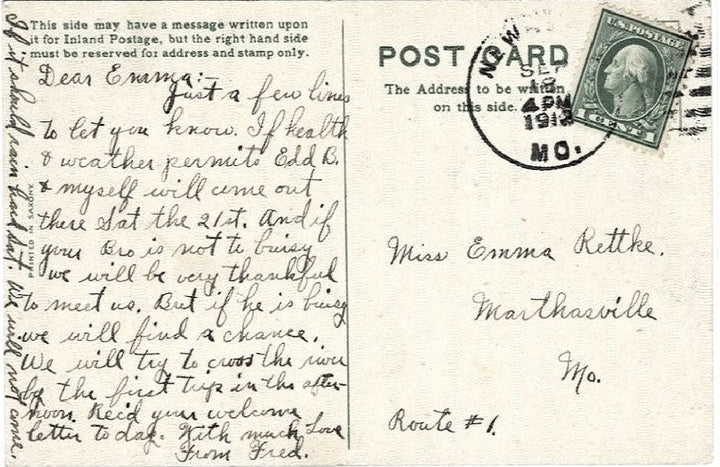 This side may have a message written upon
it for Inland Postage, but the right hand side
must be reserved for address and stamp only.
Dear Emma:-
Just a few lines
to let you know. If health
& weather permits Edd B.
& myself will come out
there Sat the 21st. And if
your Bro is not to buisy
we will be very thankful
to meet us. But if he is buisy
we will find a chance.
We will try to cross the river
by the first trip in the after-
noon. Rec'd your welcome
letter to day. With much Love
From Fred.
If it should rain hard Sat. We will not come.
PRINTED IN SAXONY
POST CARD
The Address to be written
on this side.
NEW
SEP
18
4 PM
1912
MO.
U.S. POSTAGE
1 CENT 1
Miss Emma Rettke.
Marthasville
Mo.
Route #1.